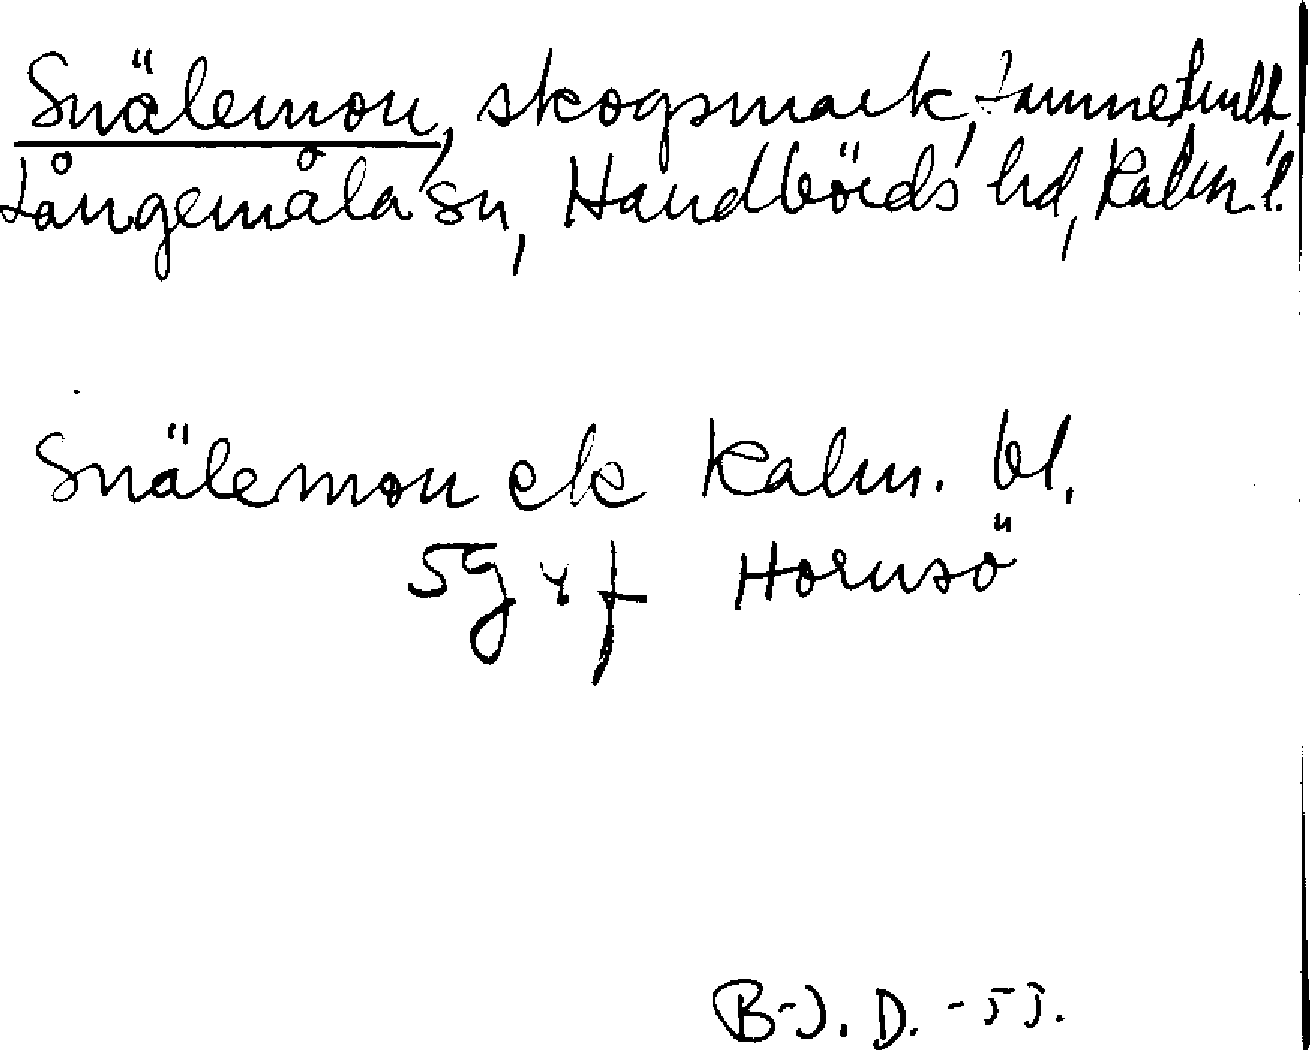 Snälemon, skogsmark,
Långemåla sn, Handbörds hd, Kalm. l.
Snälemon ek Kalm. bl.
5g Hornsö
B-J. D. -53.